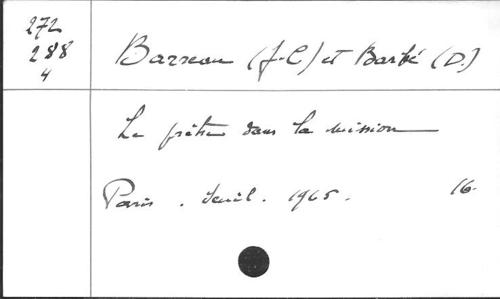 272
288
4
Barreau (J-C) et Barbé (D.)
Le prêtre dans la mission
Paris. Seuil. 1965. 16.